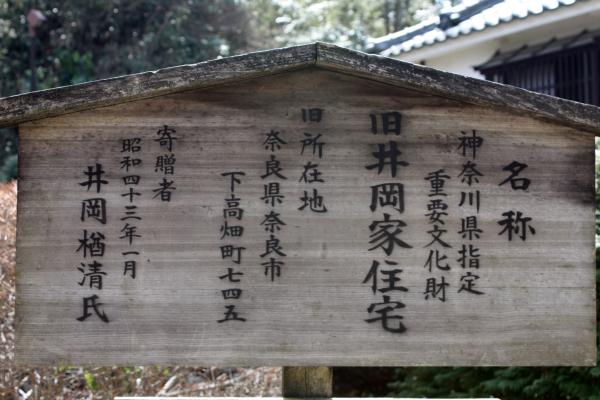 名称
神奈川県指定
重要文化財
旧井岡家住宅
旧所在地
奈良県奈良市
下高畑町七四五
寄贈者
昭和四十三年一月
井岡楢清氏